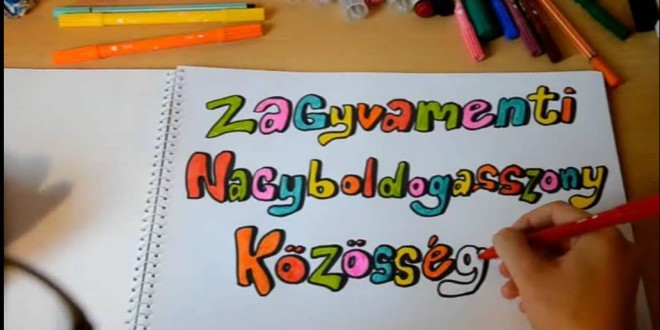 Zagyvamenti
Nagyboldogasszony
Közösség